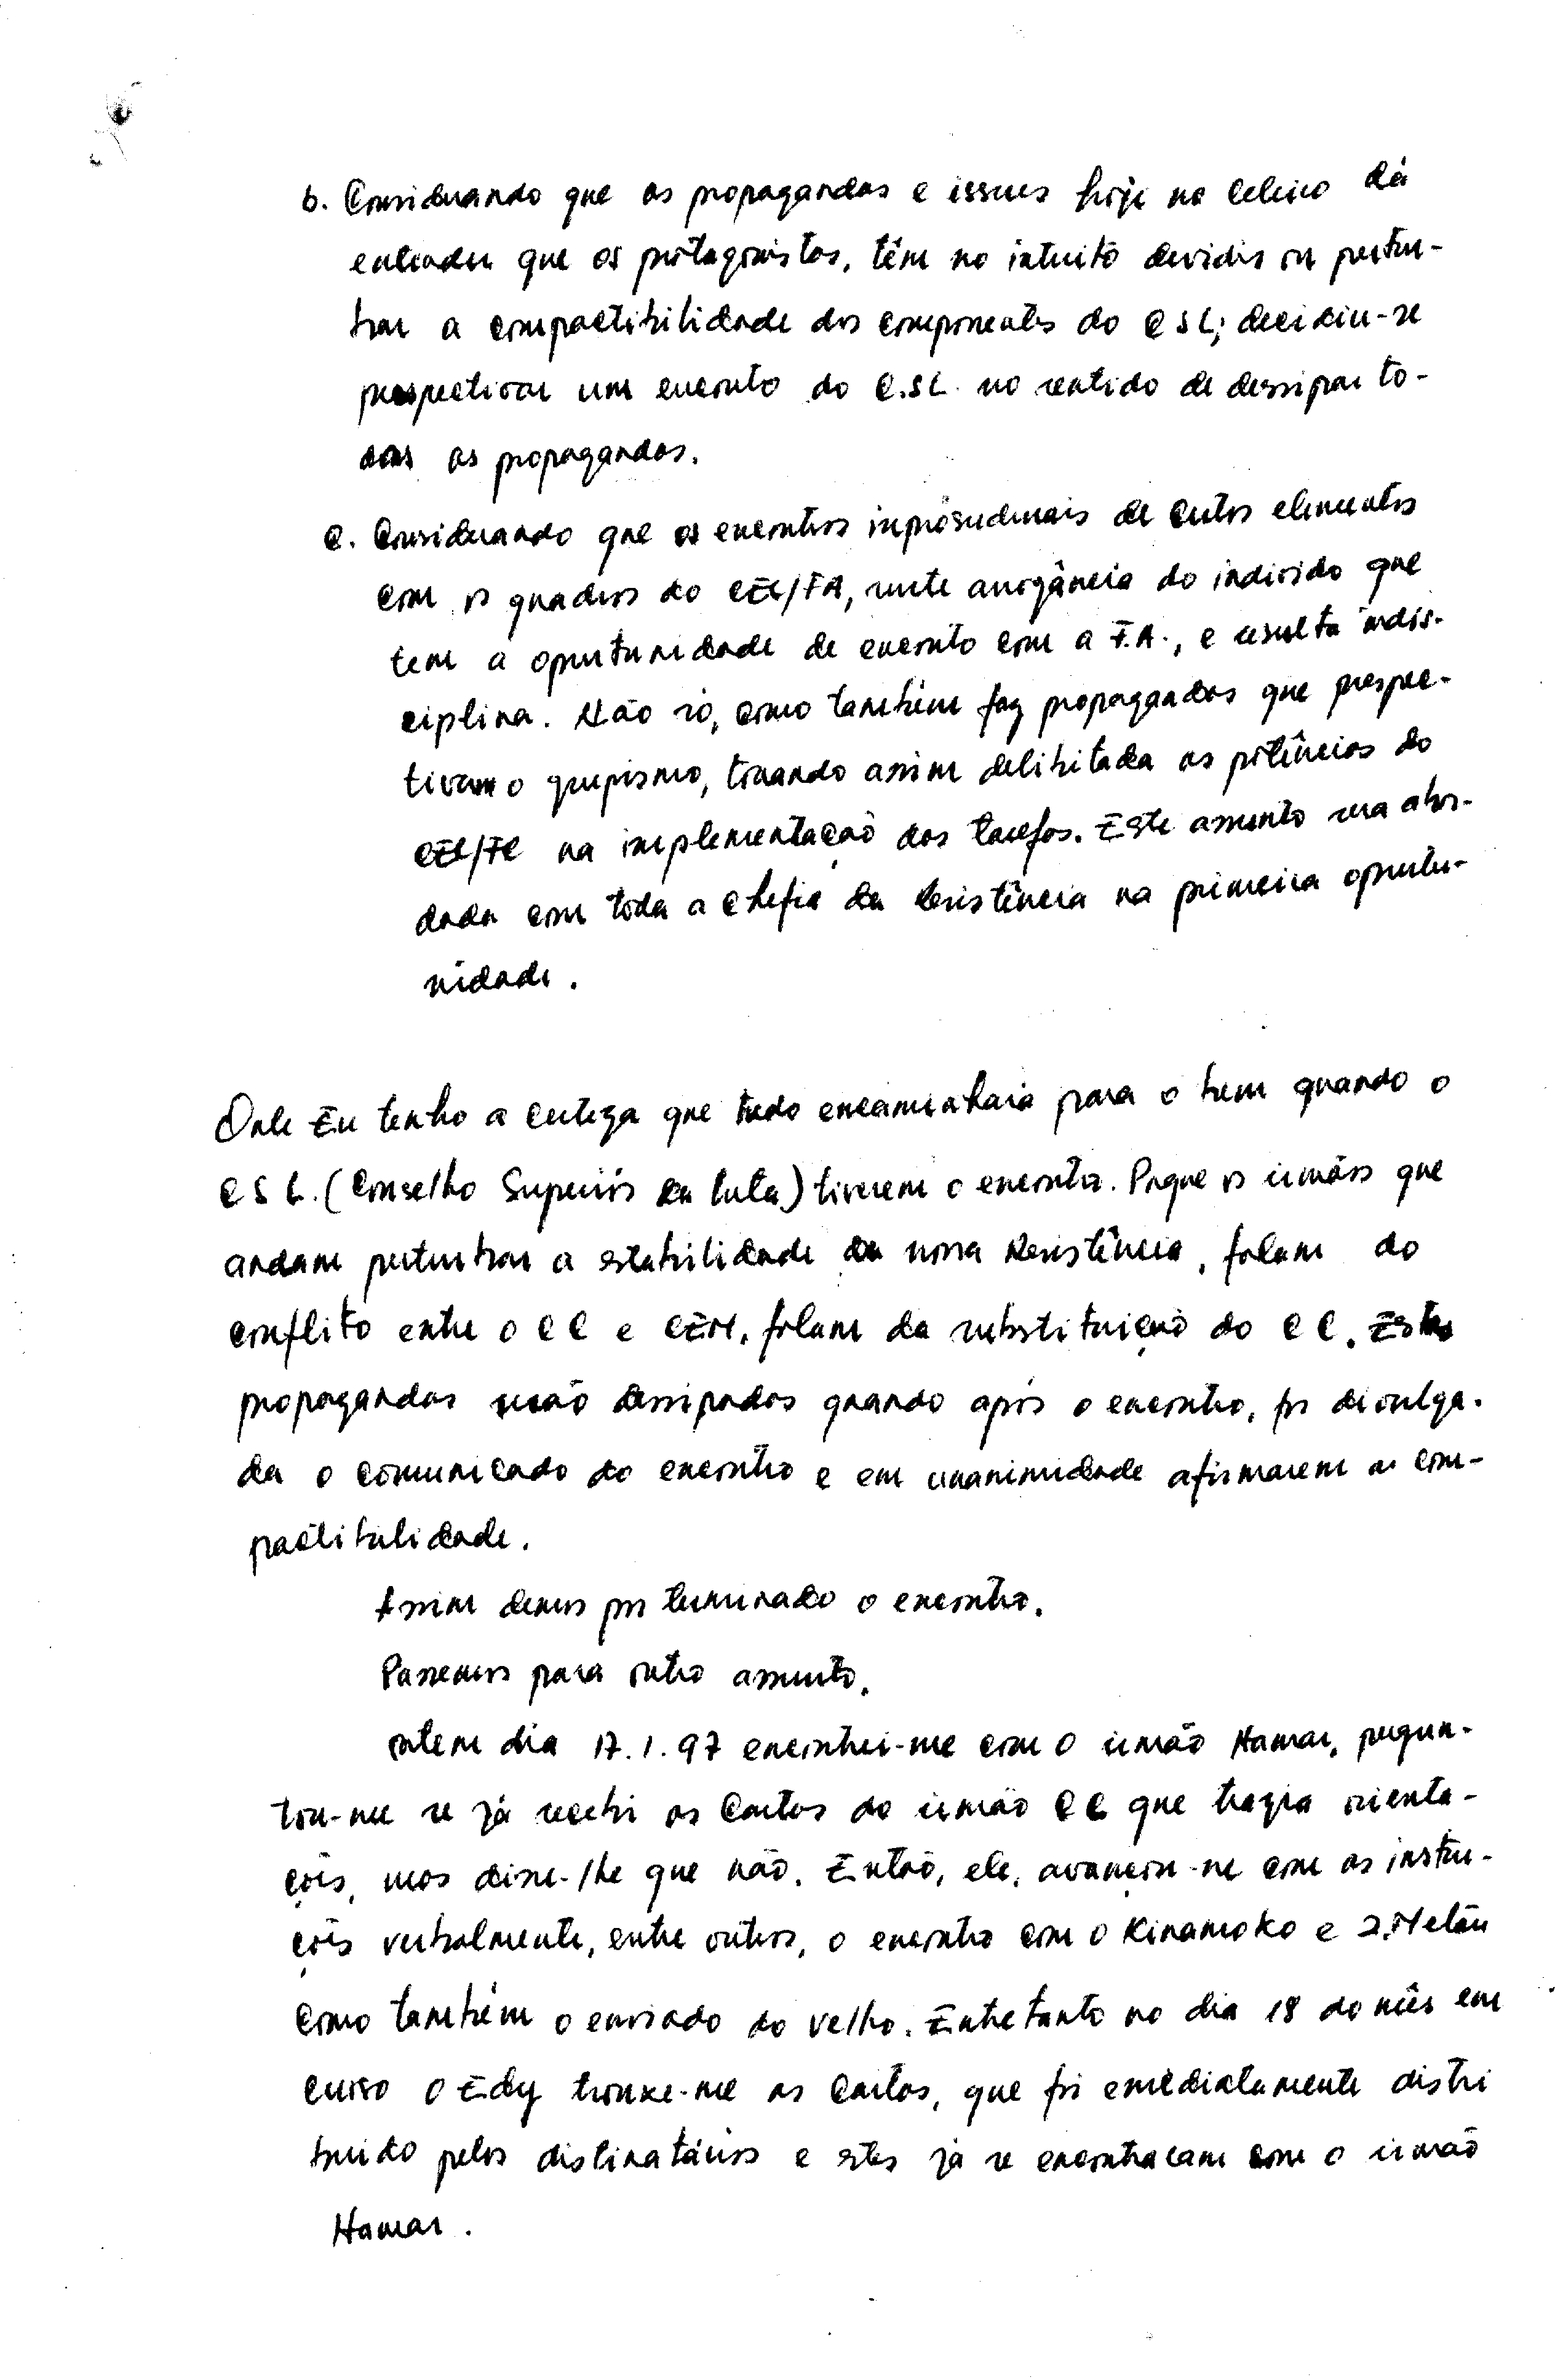 b. Considerando que as propagandas e issues hoje no celeiro dá
entender que os protagonistas, têm no intuito devidir ou pertur-
bar a compactibilidade dos componentes do CSL; decidiu-se
prespectivar um encontro do C.SL no sentido de dessipar to-
das as propagandas.
c. Considerando que os encontros de certos elementos
com os quadros do CEL/FA, surte arrogância do individo que
tem a oportunidade de encontro com a F.A., e resulta indis-
ciplina. Não só, como também faz propagandas que prespec-
tivam o grupismo, tornando assim delibitada as potências do
CEL/FC na implementação das tarefas. Este assunto sera abor-
dada com toda a chefia da Resistência na primeira oportu-
nidade.
Onde Eu tenho a certeza que tudo encaminharia para o bem quando o
CSL. (Conselho Superior da Luta) tiverem o encontro. Poque os irmãos que
andam perturbar a estabilidade da nossa Resistência, falam do
conflito entre o CC e CEM, falam da substituição do CC. Estas
propagandas serão dessipadas quando após o encontro, for divulga-
da o comunicado do encontro e em unanimidade afirmarem a com-
pactibilidade.
Assim demos por terminado o encontro.
Passemos para outro assunto.
ontem dia 17.1.97 encontrei-me com o irmão Hamar, pergun-
tou-me se já recebi as Cartas do irmão CC que trazia orienta-
ções, mas disse-lhe que não. Então, ele, avançou-me com as instru-
ções verbalmente, entre outros, o encontro com o Kinamoko e
como também o enviado do velho. Entretanto no dia 18 do mês em
curso o Edy trouxe-me as Cartas, que foi emediatamente distri
buido pelos distinatários e estes já se encontraram com o irmão
Hamar.